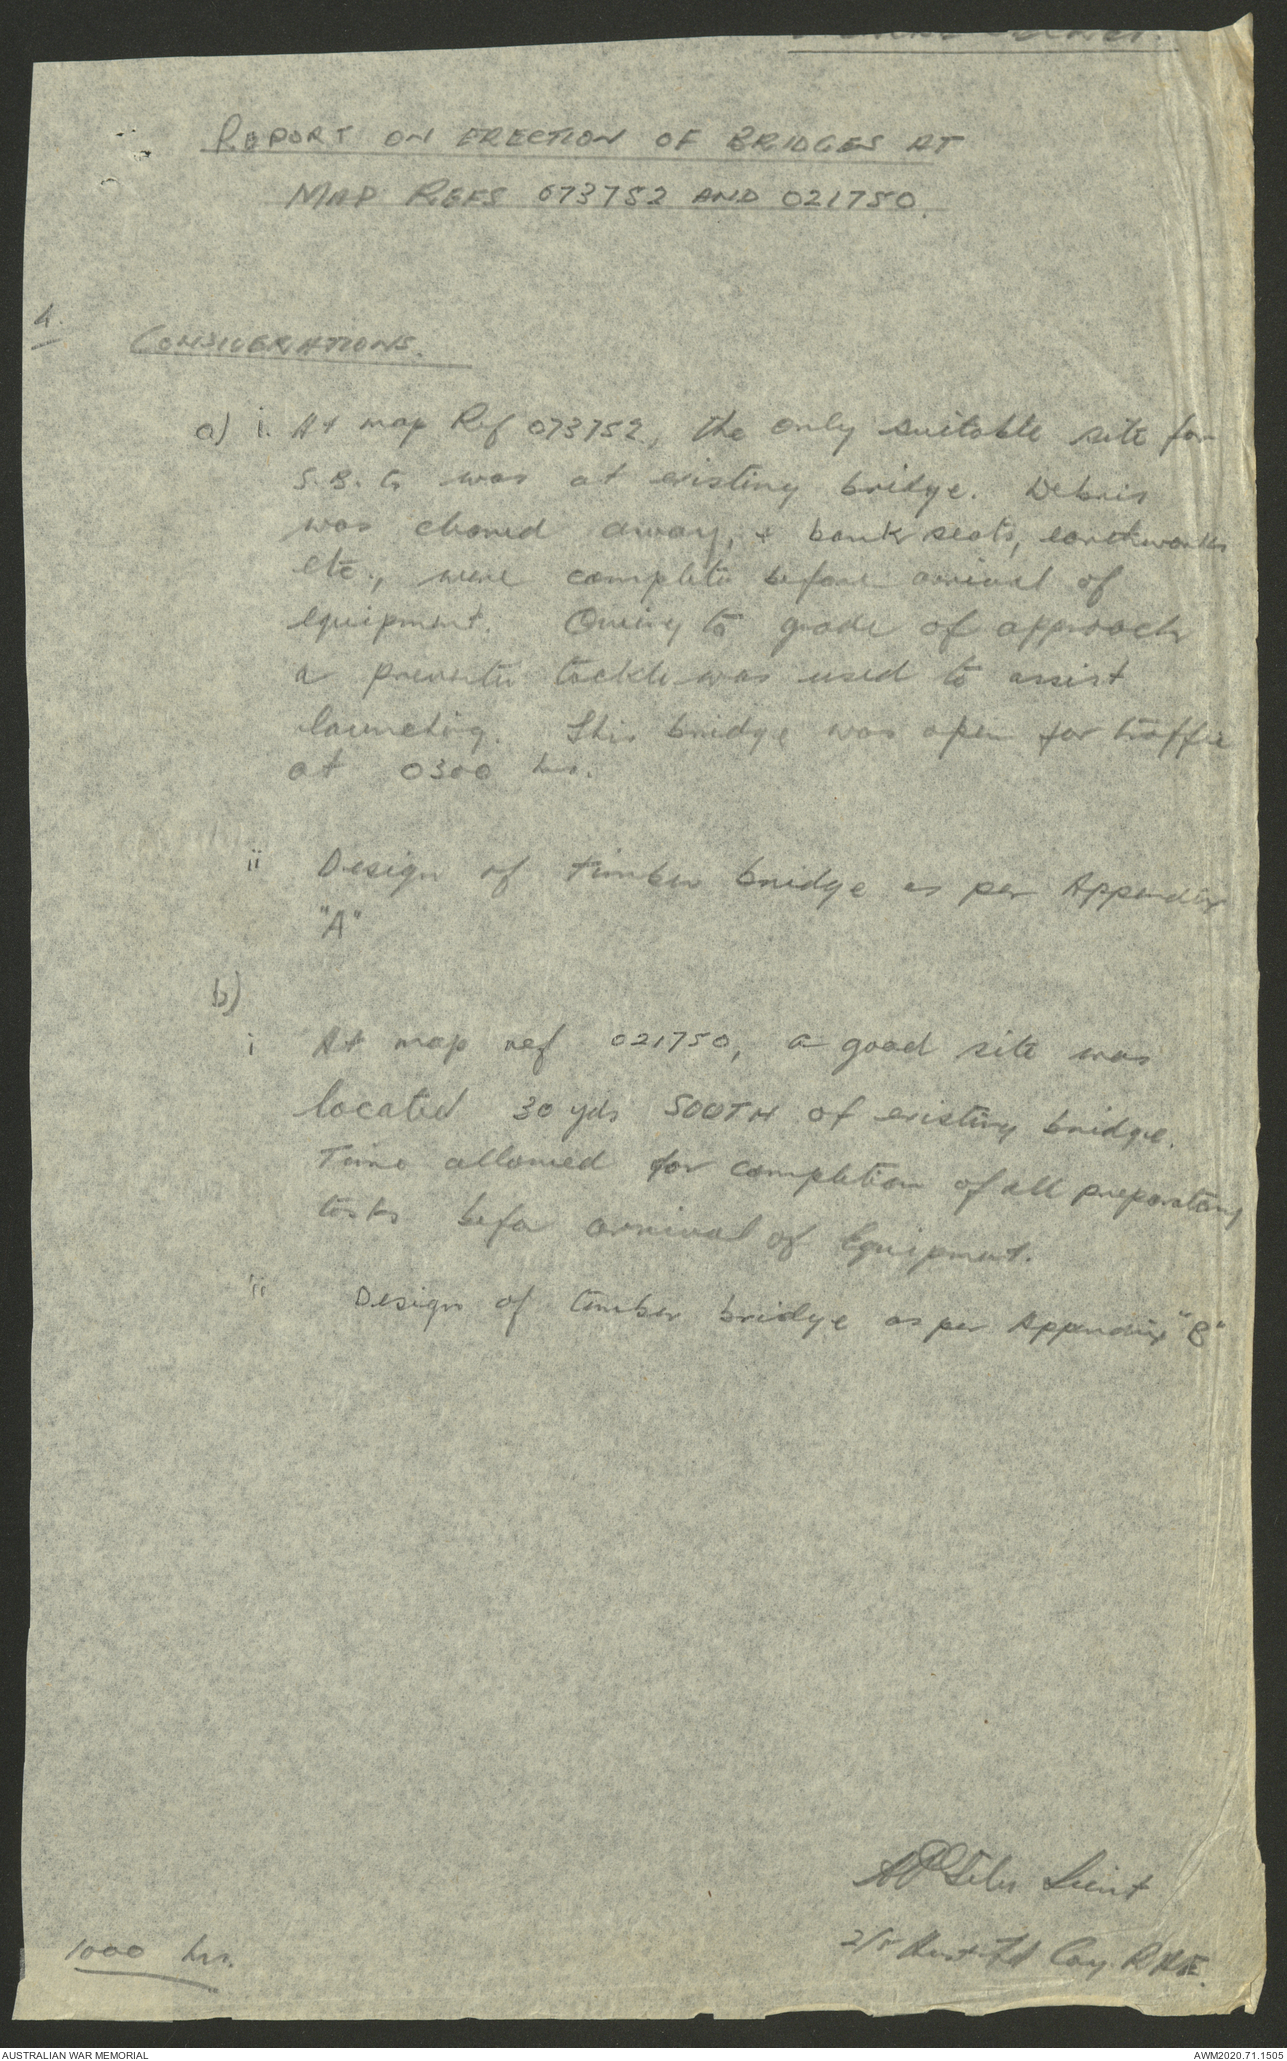 REPORT ON ERECTION OF BRIDGES AT
MAP REFS 073752 AND 021750.
4.
CONSIDERATIONS.
a) i. At map Ref 073752, the only suitable site for
S.B.G was at existing bridge. Debris
was cleared away, & bank seats, earthworks
etc., were complete before arrival of
equipment. Owing to grade of approach
a preventer tackle was used to assist
launching. This bridge was open for traffic
at 0300 hrs.
ii Design of timber bridge as per Appendix
"A"
b)
i At map ref 021750, a good site was
located 30 yds SOUTH of existing bridge.
Time allowed for completion of all preparatory
tasks before arrival of Equipment.
ii Design of timber bridge as per Appendix "B"
Lieut
Aust Fd Coy R.A.E.
1000 hrs.
AUSTRALIAN WAR MEMORIAL
AWM2020.71.1505